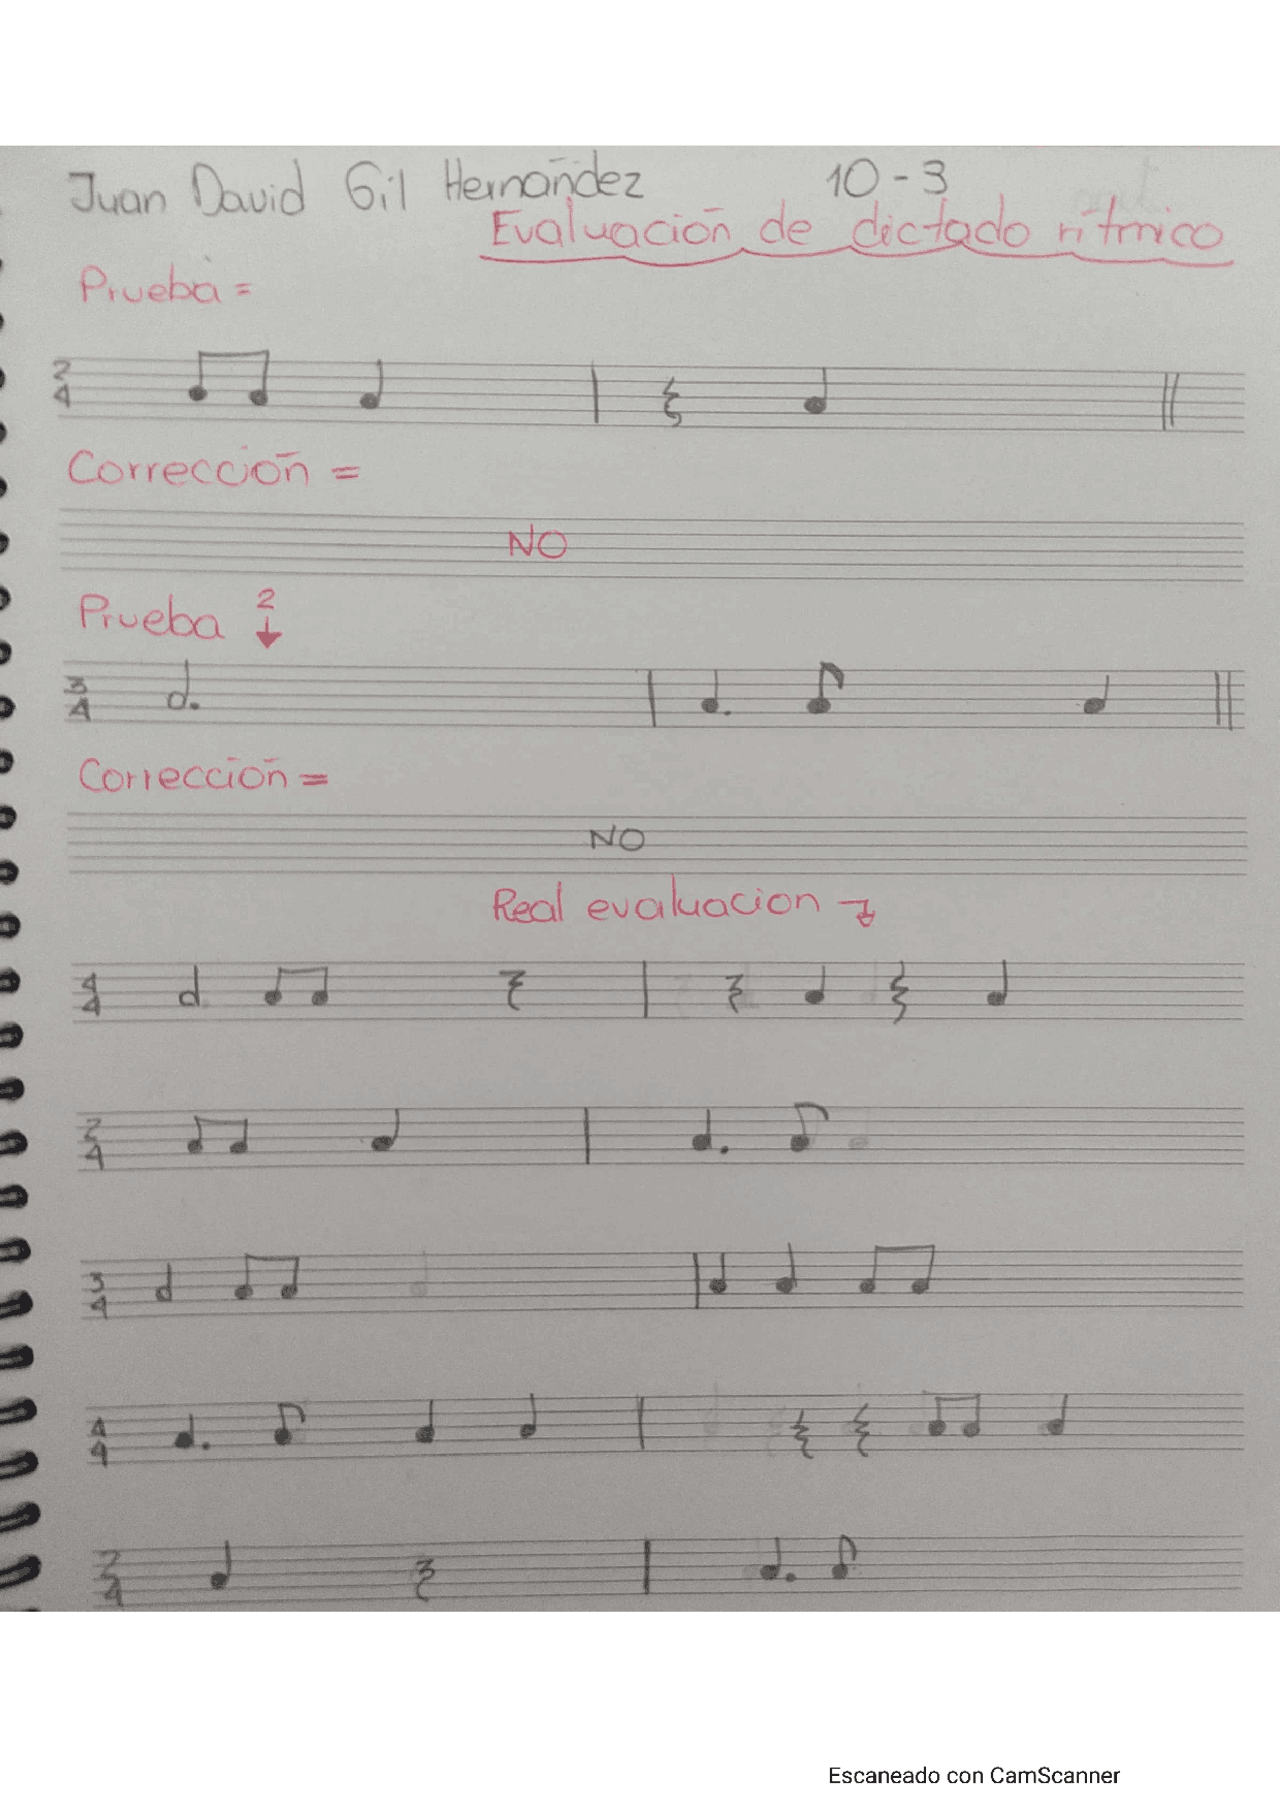 Juan David Gil Hernández 10-3
Evaluación de dictado rítmico
Prueba =
2
4
Corrección =
NO
Prueba 2
3
4
Corrección =
NO
Real evaluacion
4
4
2
4
3
4
4
4
2
4
Escaneado con CamScanner